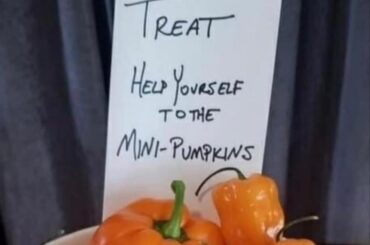 TREAT
HELP YOURSELF
TO THE
MINI-PUMPKINS